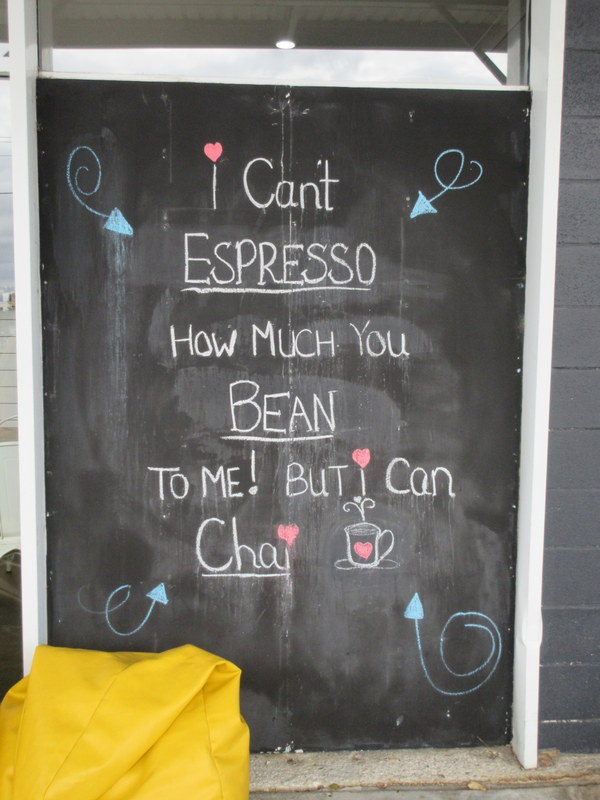 i Can't
ESPRESSO
HOW MUCH YOU
BEAN
TO ME! BUT i Can
Chai